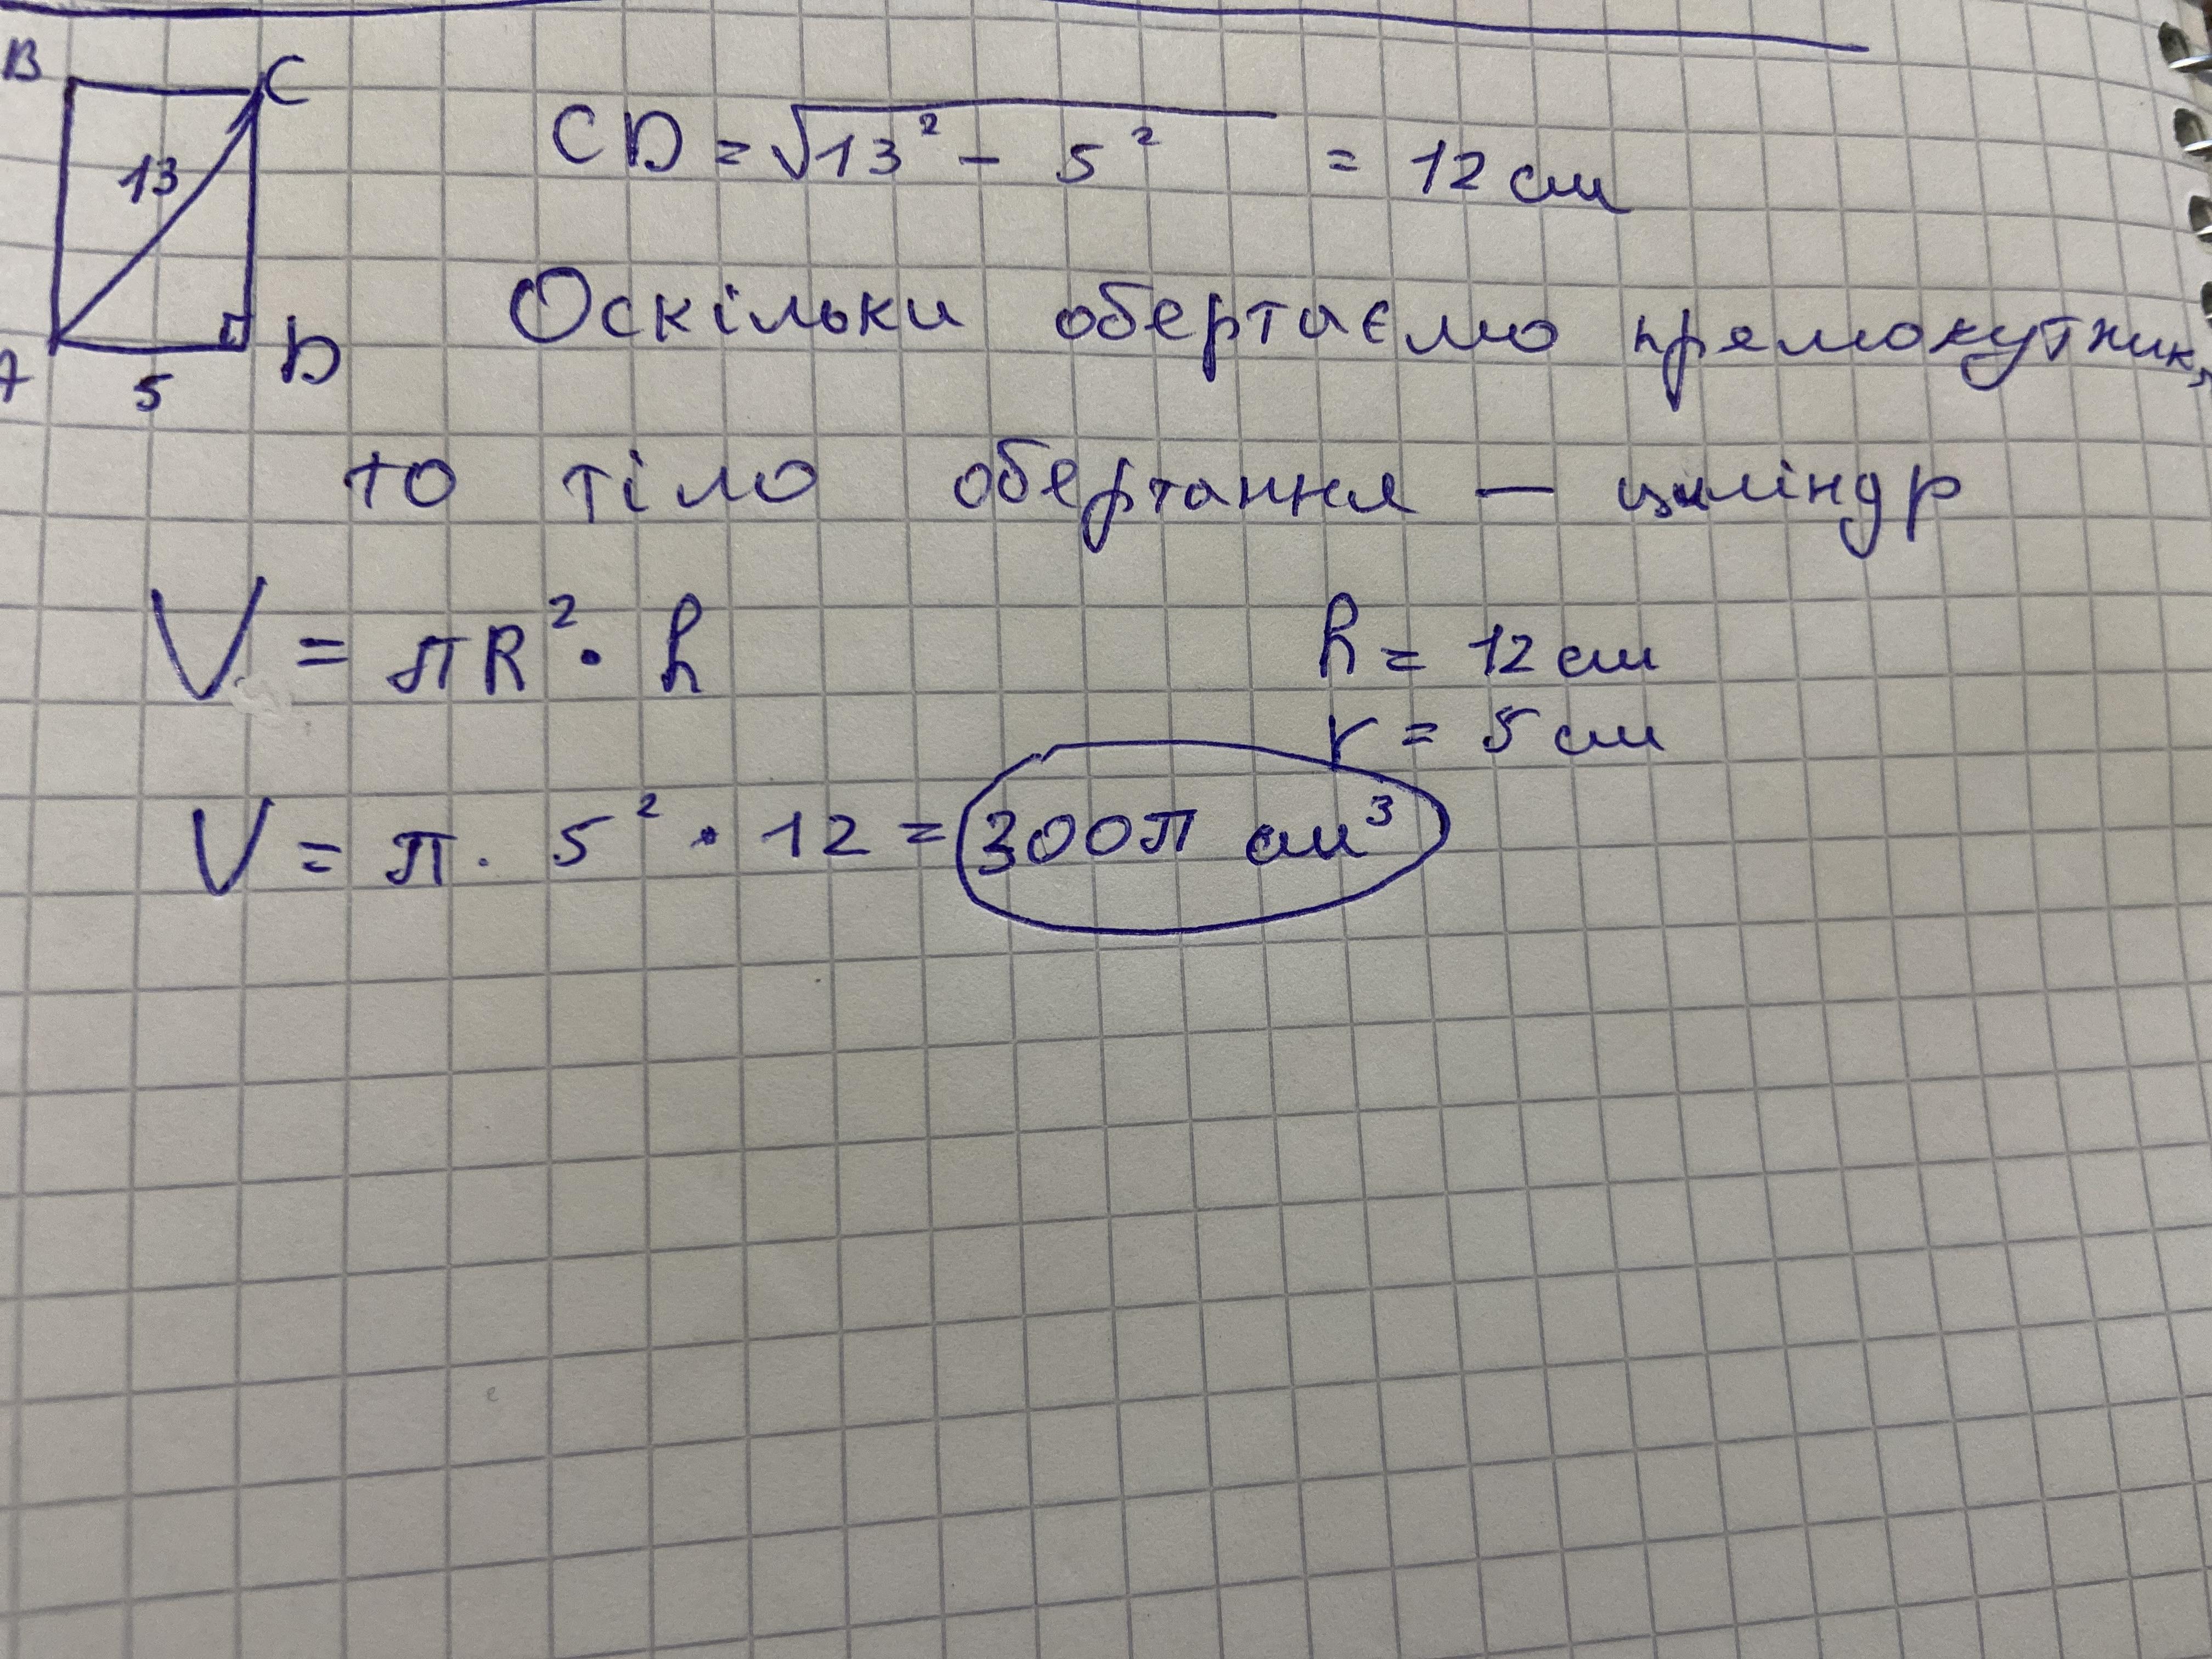 B C
13
A 5 D
CD = √13² - 5² = 12 см
Оскільки обертаємо прямокутник,
то тіло обертання — циліндр
V = πR² · h h = 12 см
r = 5 см
V = π · 5² · 12 = 300π см³